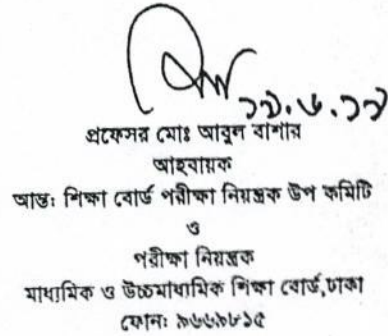 ১৯.৬.১৯
প্রফেসর মোঃ আবুল বাশার
আহবায়ক
আন্ত: শিক্ষা বোর্ড পরীক্ষা নিয়ন্ত্রক উপ কমিটি
ও
পরীক্ষা নিয়ন্ত্রক
মাধ্যমিক ও উচ্চমাধ্যমিক শিক্ষা বোর্ড,ঢাকা
ফোন: ৯৬৬৯৮১৫